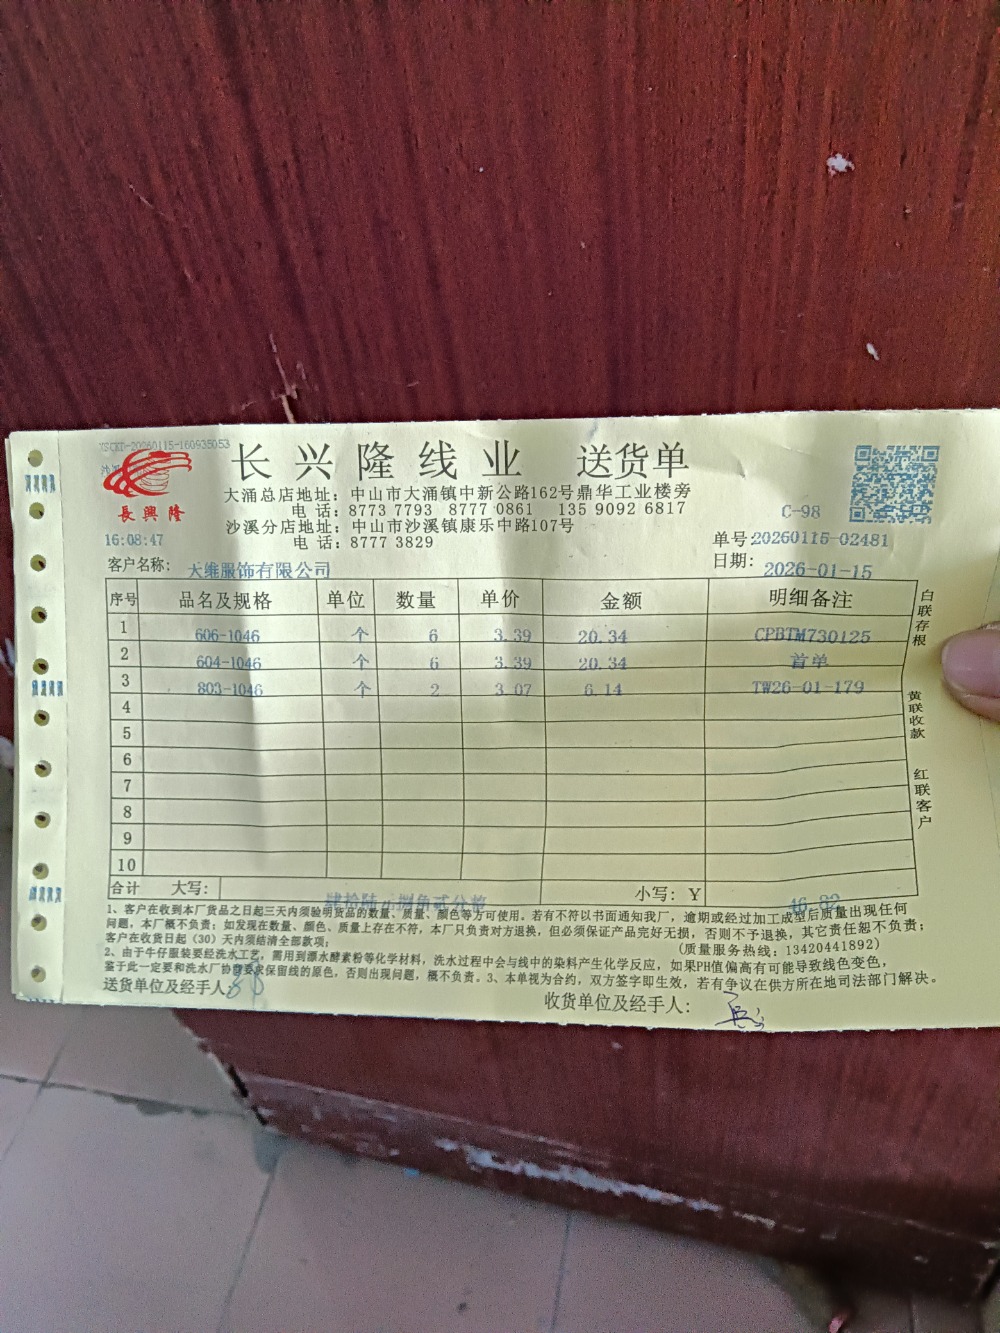 XSCKT-20260115-160935053
长兴隆线业 送货单
長興隆
大涌总店地址：中山市大涌镇中新公路162号鼎华工业楼旁
电 话：8773 7793 8777 0861 135 9092 6817
C-98
沙溪分店地址：中山市沙溪镇康乐中路107号
16:08:47
电 话：8777 3829
单号:20260115-02481
客户名称： 大维服饰有限公司
日期： 2026-01-15
序号 品名及规格 单位 数量 单价 金额 明细备注
1 606-1046 个 6 3.39 20.34 CPBTM730125
2 604-1046 个 6 3.39 20.34 首单
3 803-1046 个 2 3.07 6.14 TW26-01-179
4
5
6
7
8
9
10
白联存根
黄联收款
红联客户
合计 大写： 肆拾陆元捌角贰分整 小写：Y 46.82
1、客户在收到本厂货品之日起三天内须验明货品的数量、质量、颜色等方可使用。若有不符以书面通知我厂，逾期或经过加工成型后质量出现任何
问题，本厂概不负责；如发现在数量、颜色、质量上存在不符，本厂只负责对方退换，但必须保证产品完好无损，否则不予退换，其它责任恕不负责；
客户在收货日起（30）天内须结清全部款项；
(质量服务热线：13420441892)
2、由于牛仔服装要经洗水工艺，需用到漂水酵素粉等化学材料，洗水过程中会与线中的染料产生化学反应，如果PH值偏高有可能导致线色变色，
鉴于此一定要和洗水厂协商要求保留线的原色，否则出现问题，概不负责。3、本单视为合约，双方签字即生效，若有争议在供方所在地司法部门解决。
送货单位及经手人：
收货单位及经手人：